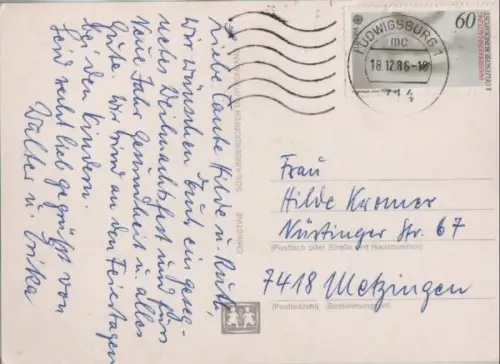 Liebe Tante Hilde u. Ruth,
Wir wünschen Euch ein geseg-
netes Weihnachtsfest und fürs
Neue Jahr Gesundheit u. alles
Gute. Wir sind an den Feiertagen
bei den Kindern.
Seid recht lieb gegrüßt von
Walter u. Erika
LUDWIGSBURG 1
mc
18.12.86-18
714
EUROPA
60
DEUTSCHE BUNDESPOST
Frau
Hilde Kromer
Nürtinger Str. 67
(Postfach oder Straße und Hausnummer)
7418 Metzingen
(Postleitzahl) (Bestimmungsort)